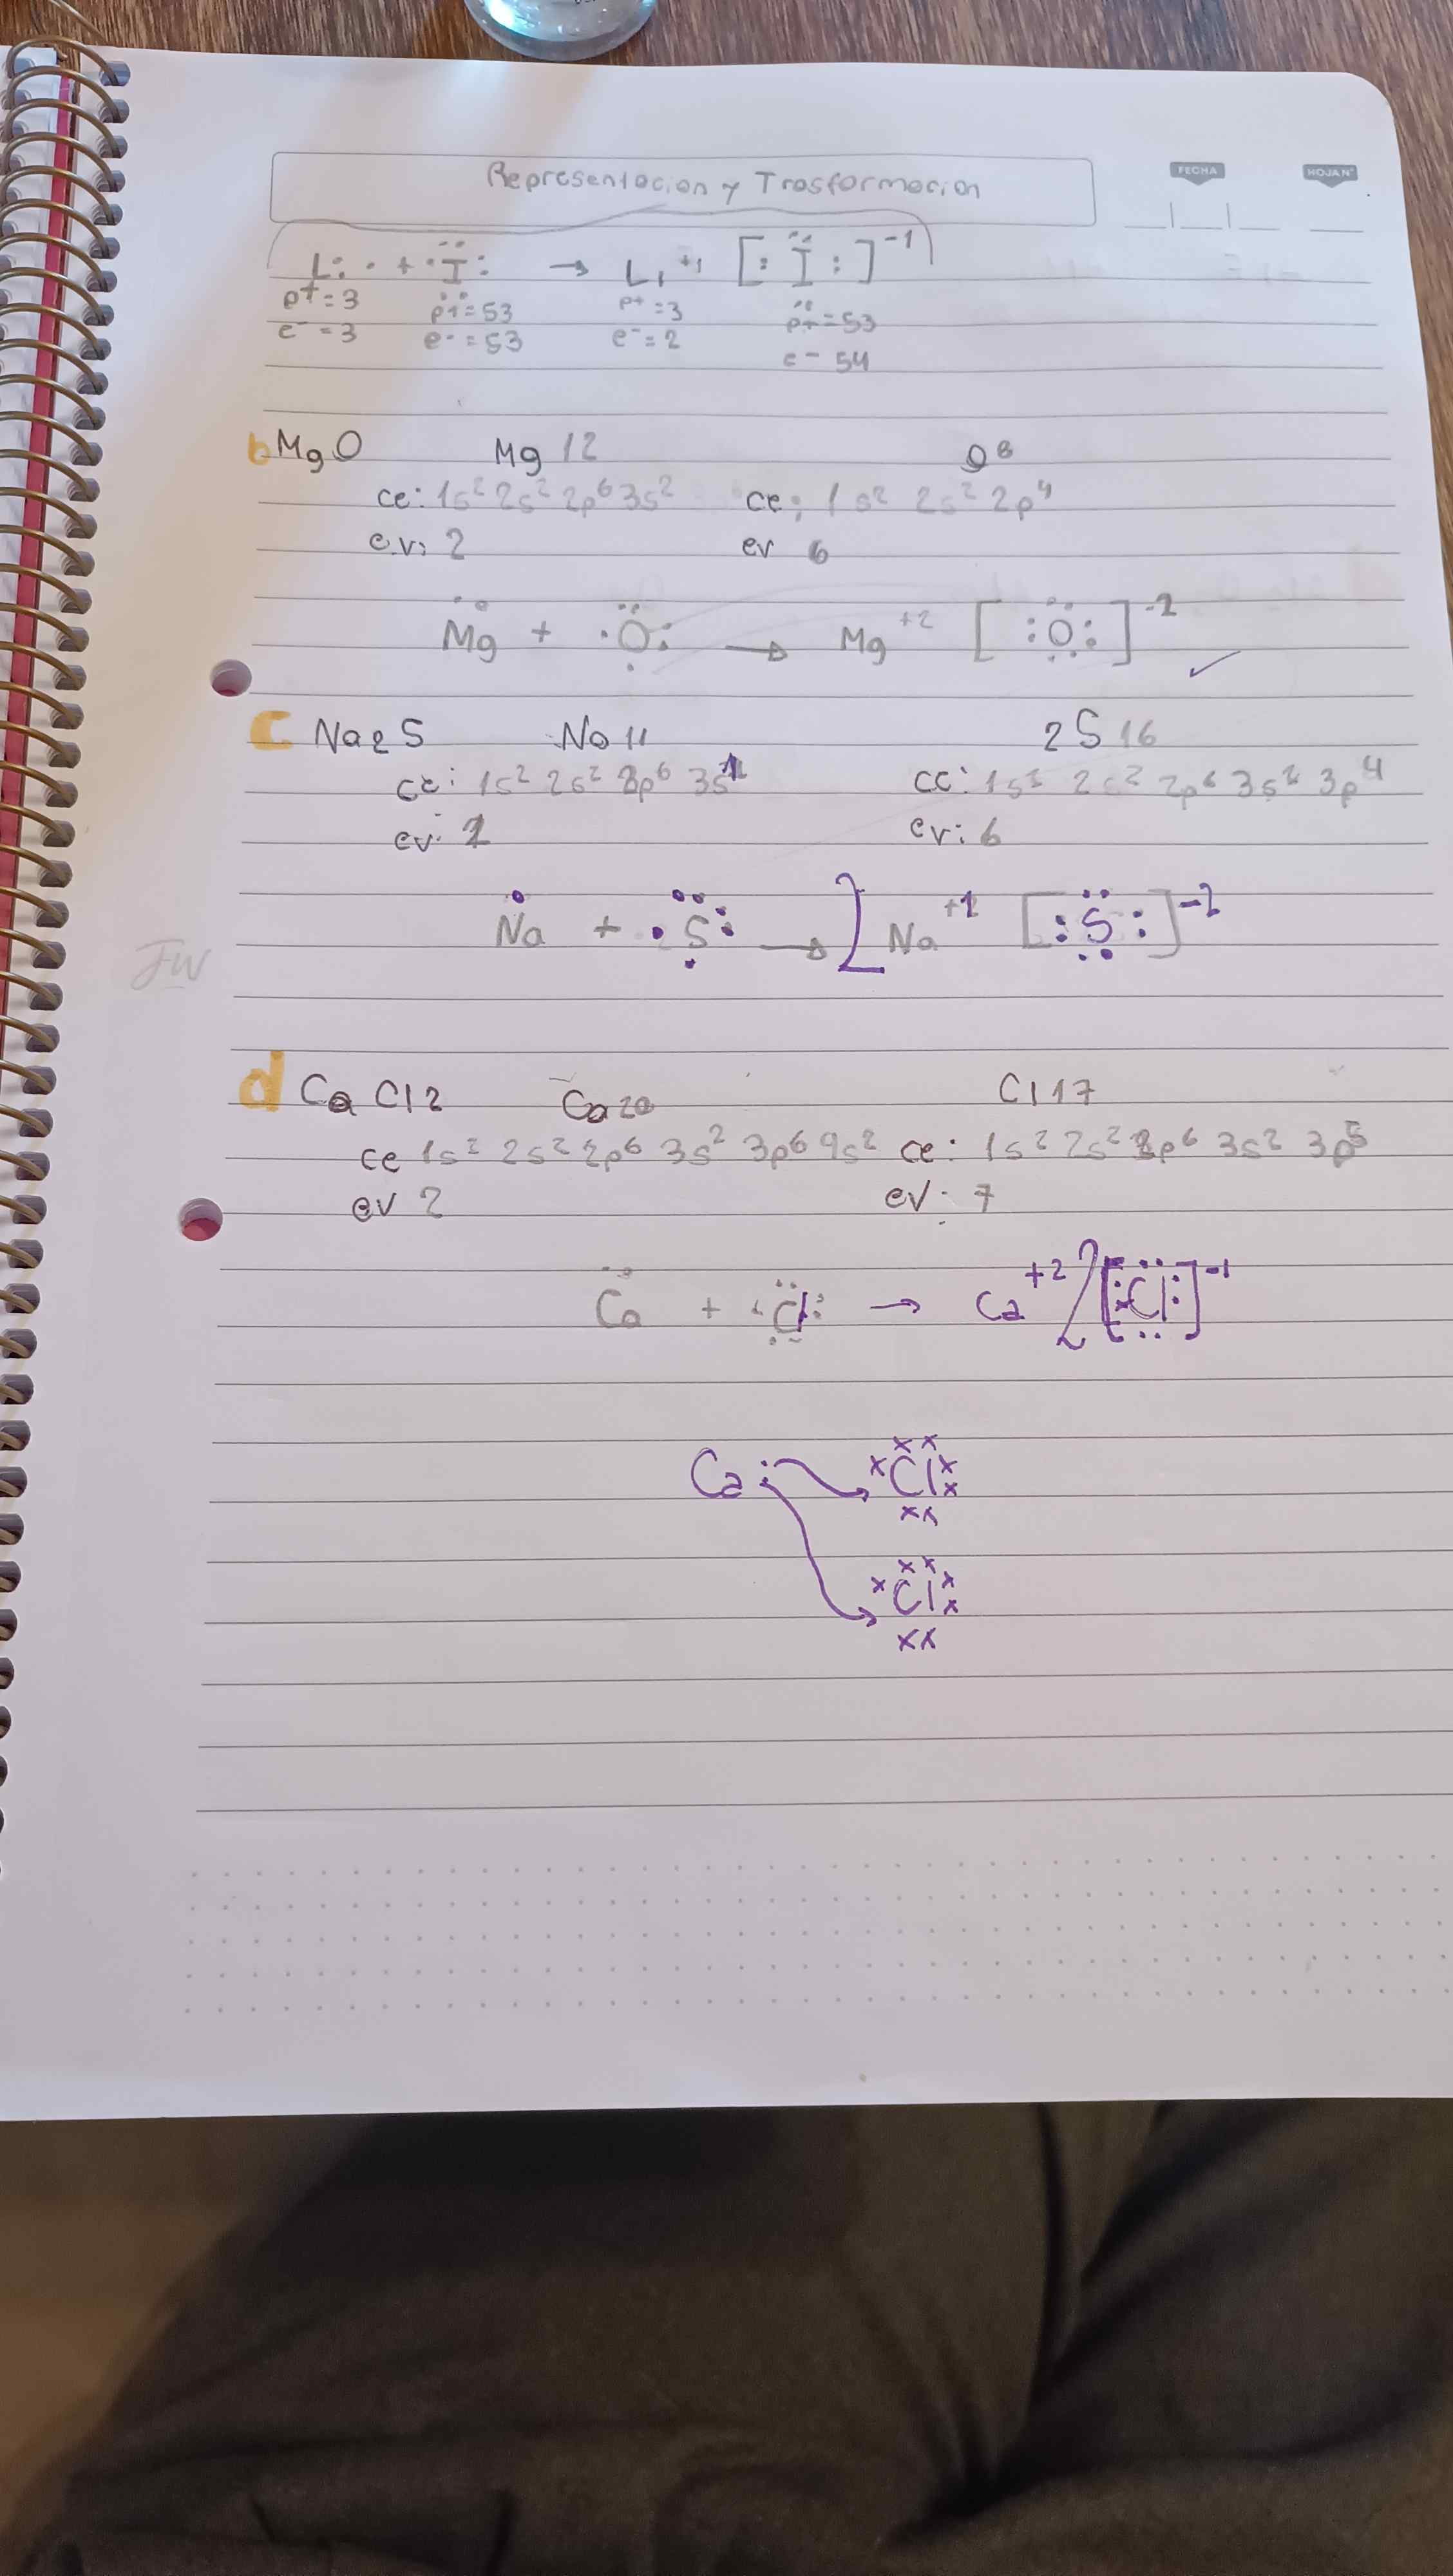 Representacion y Trasformacion
FECHA
HOJA N°
Li · + ·I: → Li +1 [:I:] -1
p+=3 p+=53 p+=3 p+=53
e-=3 e-=53 e-=2 e- 54
b MgO Mg 12 O 8
ce: 1s² 2s² 2p⁶ 3s² ce: 1s² 2s² 2p⁴
ev: 2 ev 6
Mg + ·O: → Mg +2 [:O:] -2
c Na2S Na 11 2S 16
ce: 1s² 2s² 2p⁶ 3s1 ce: 1s² 2s² 2p⁶ 3s² 3p⁴
ev: 1 ev: 6
Na + ·S: → 2 Na +1 [:S:] -2
JW
d Ca Cl2 Ca 20 Cl 17
ce 1s² 2s² 2p⁶ 3s² 3p⁶ 4s² ce: 1s² 2s² 2p⁶ 3s² 3p5
ev 2 ev: 7
Ca + ·Cl: → Ca +2 2 [:Cl:] -1
Ca: xx x Cl x x xx
xx x Cl x x xx